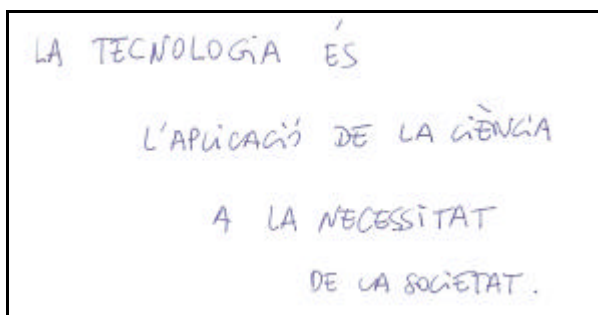 LA TECNOLOGiA ÉS
L'APLiCACiÓ DE LA CiÈNCiA
A LA NECESSiTAT
DE LA SOCiETAT.